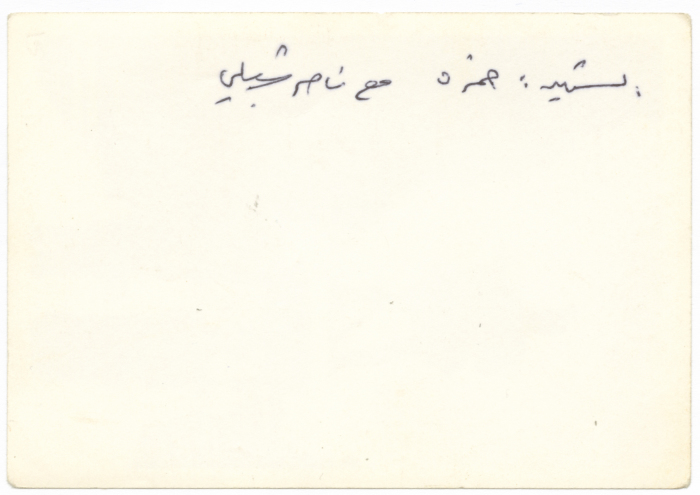 الشهيد : حمزة مع ناصر شبلي